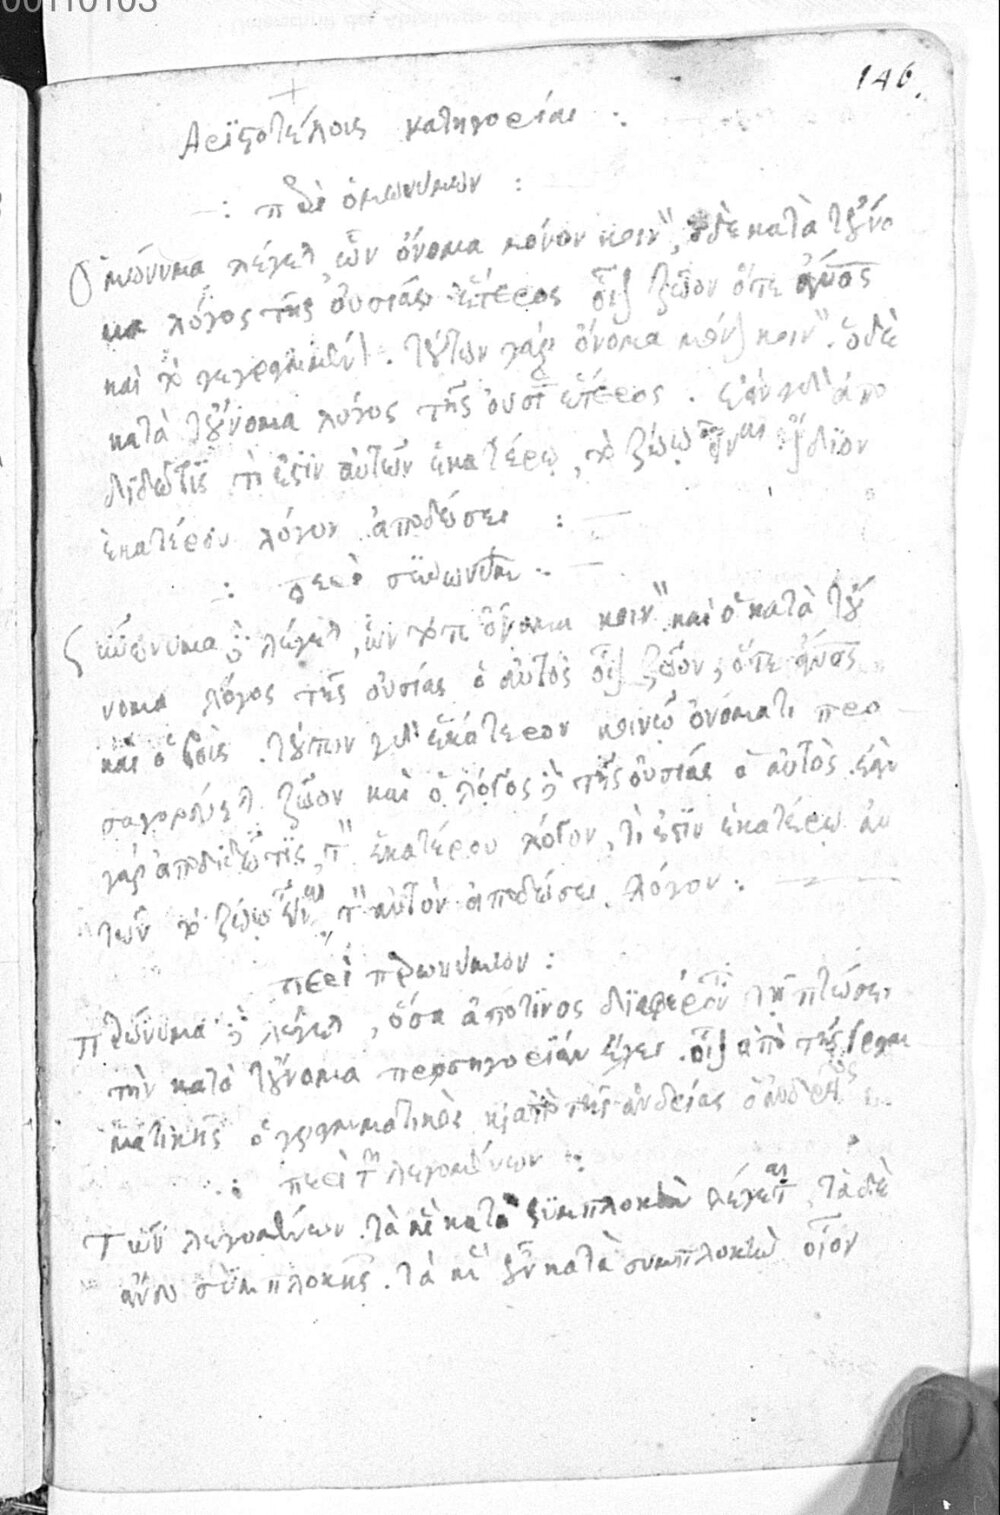 00110103
146.
+
Ἀριστοτέλους κατηγορίαι :
–: περὶ ὁμωνύμων :
Ὁμώνυμα λέγεται, ὧν ὄνομα μόνον κοινὸν, ὁ δὲ κατὰ τοὔνο
μα λόγος τῆς οὐσίας ἕτερος οἷον ζῶον ὅ τε ἄνθρωπος
καὶ τὸ γεγραμμένον. τούτων γὰρ ὄνομα μόνον κοινὸν. ὁ δὲ
κατὰ τοὔνομα λόγος τῆς οὐσίας ἕτερος. ἐὰν γὰρ ἀπο
διδῶ τίς τί ἐστὶν αὐτῶν ἑκατέρω, τὸ ζώω εἶναι ἴδιον
ἑκατέρου λόγον ἀποδώσει :–
–: περὶ συνωνύμων :–
Συνώνυμα δὲ λέγεται, ὧν τό τε ὄνομα κοινὸν καὶ ὁ κατὰ τοὔ
νομα λόγος τῆς οὐσίας ὁ αὐτὸς οἷον ζῶον, ὅ τε ἄνθρωπος
καὶ ὁ βοῦς. τούτων γὰρ ἑκάτερον κοινῶ ὀνόματι προ
σαγορεύεται ζῶον καὶ ὁ λόγος δὲ τῆς οὐσίας ὁ αὐτὸς. ἐὰν
γὰρ ἀποδιδῶ τίς τὸν ἑκατέρου λόγον, τί ἐστὶν ἑκατέρω αὐ
τῶν τὸ ζώω εἶναι, τὸν αὐτὸν ἀποδώσει λόγον :–
περὶ παρωνύμων :
Παρώνυμα δὲ λέγεται, ὅσα ἀπό τινος διαφέροντα τῆ πτώσει
τὴν κατὰ τοὔνομα προσηγορίαν ἔχει. οἷον ἀπὸ τῆς γραμ
ματικῆς ὁ γραμματικὸς καὶ ἀπὸ τῆς ἀνδρείας ὁ ἀνδρεῖος :–
.: περὶ τῶν λεγομένων :
Τῶν λεγομένων τὰ μὲν κατὰ συμπλοκὴν λέγεται, τὰ δὲ
ἄνευ συμπλοκῆς. τὰ μὲν οὖν κατὰ συμπλοκὴν οἷον